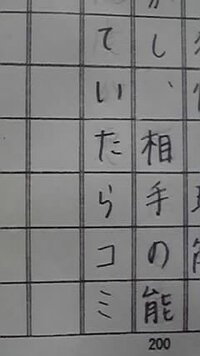 し、相手の能
ていたらコミ
200